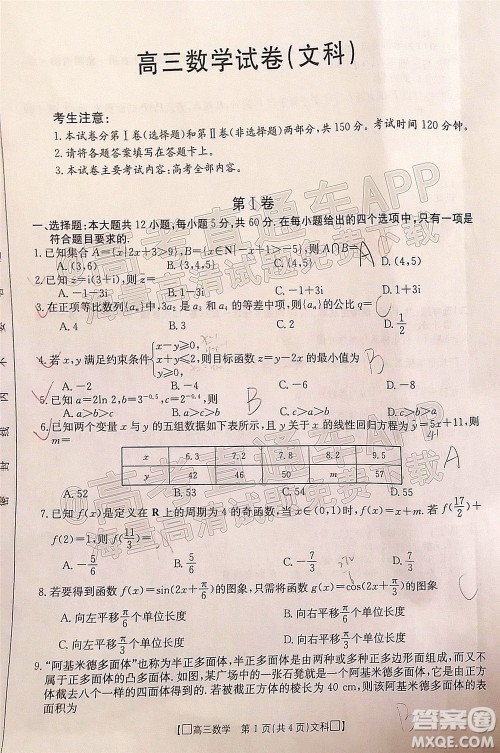 高三数学试卷(文科)
考生注意:
1.本试卷分第Ⅰ卷(选择题)和第Ⅱ卷(非选择题)两部分,共150分。考试时间120分钟。
2.请将各题答案填写在答题卡上。
3.本试卷主要考试内容:高考全部内容。
第Ⅰ卷
一、选择题:本大题共12小题,每小题5分,共60分.在每小题给出的四个选项中,只有一项是
符合题目要求的.
1.已知集合A={x|2x+3>9},B={x∈N|-1<x≤5},则A∩B= A
A.(3,6) B.{3,4,5} C.{4,5} D.(4,5)
2.已知z=i(3+i),则z̄=
A.-1-3i B.1-3i C.-1+3i D.1+3i
3.在正项等比数列{aₙ}中,3a₂是a₃和a₄的等差中项,则{aₙ}的公比q= C
A.4 B.3 C.2 D.1/2
4.若x,y满足约束条件{x-y≥0, x+y≤2, y≥0,则目标函数z=y-2x的最小值为 A
A.-2 B.-4 C.-6 D.-8
5.已知a=2ln 2,b=3⁻⁰·⁵, B
A.a>b>c B.a>c>b C.b>a>c D.c>b>a
6.已知两个变量x与y的五组数据如下表所示,且y关于x的线性回归方程为ŷ=5x+11,则
m= A
x 6.3 7.2
y 42 46 54 m
A.52 B.53 C.54 D.55
7.已知f(x)是定义在R上的周期为4的奇函数,若f(11/3)=-7/3,则f(17/2)+
A.-5/6 B.5/6 C.-7/3 D.7/3
8.若要得到函数f(x)=sin(2x+π/6)的图象,只需将函数g(x)=cos(2x+π/3)的图象 C
A.向左平移π/6个单位长度 B.向右平移π/6个单位长度
C.向左平移π/3个单位长度 D.向右平移π/3个单位长度
9.“阿基米德多面体”也称为半正多面体,半正多面体是由两种或多种正多边形面组成,而又不
属于正多面体的凸多面体.如图,某广场的一张石凳就是一个阿基米德多面体,它是由正方
体截去八个一样的四面体得到的.若被截正方体的棱长为40 cm,则该阿基米德多面体的表
面积为 B
【高三数学 第1页(共4页)文科】
高考直通车APP
海量高清试题免费下载
高考直通车APP
海量高清试题免费下载
密封线内不要答
答案圈
MXQE.COM